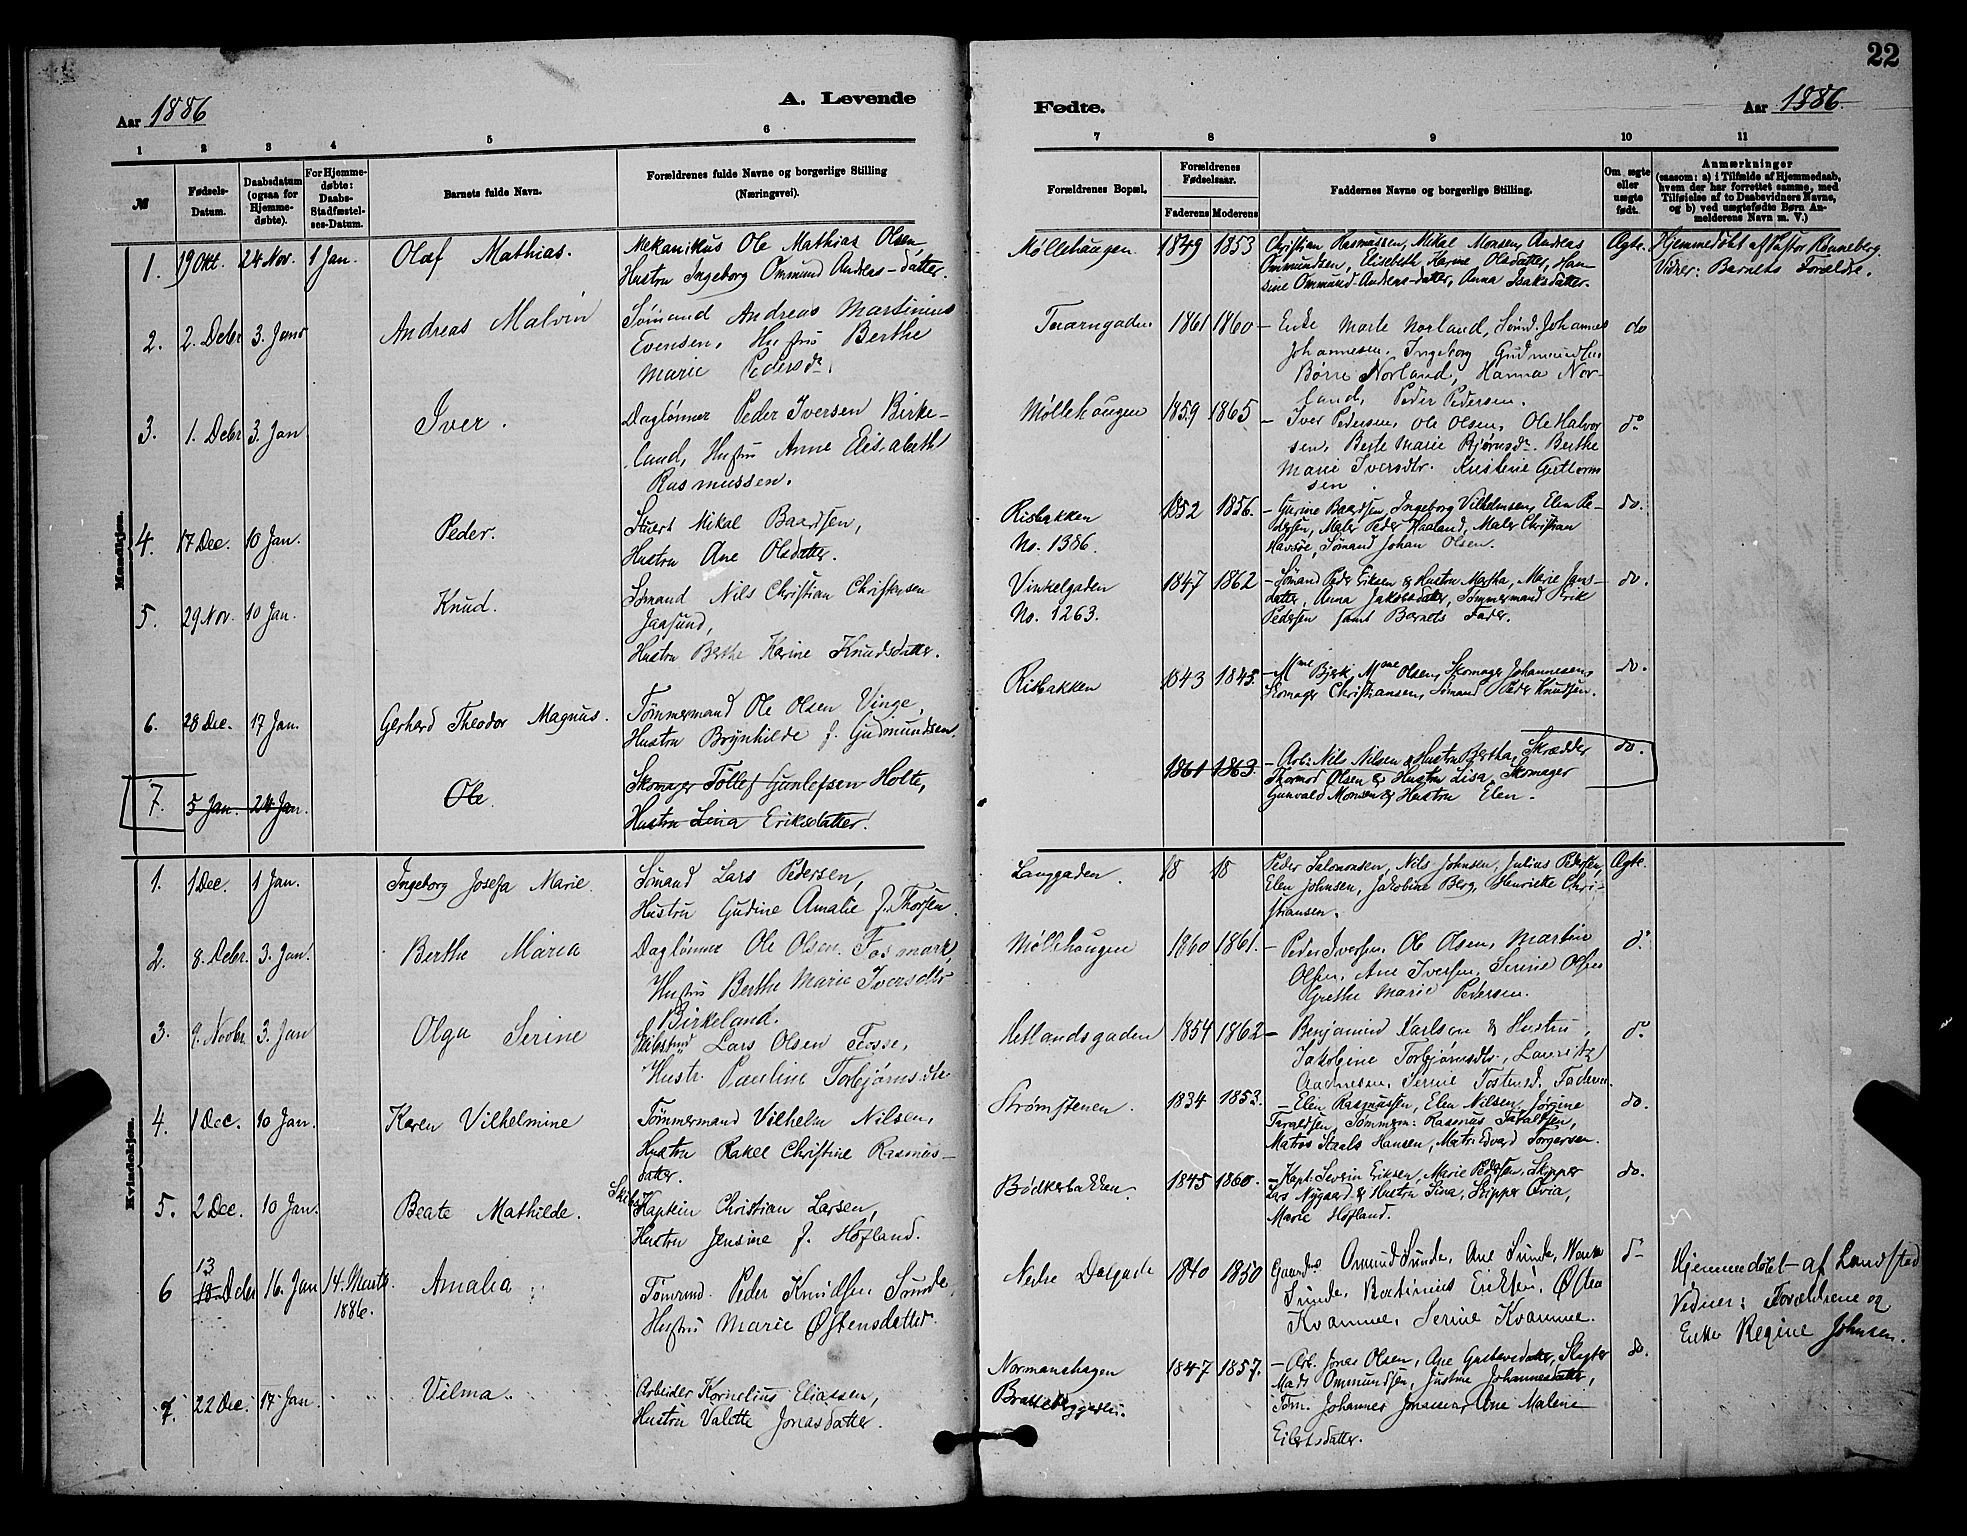 22
Aar 1886
A. Levende
Fødte.
Aar 1886.
1 2 3 4 5 6 7 8 9 10 11
№
Fødsels-Datum.
Daabsdatum (ogsaa for Hjemme-døbte).
For Hjemme-døbte: Daabs-Stadfæstel-ses-Datum.
Barnets fulde Navn.
Forældrenes fulde Navne og borgerlige Stilling (Næringsvei).
Forældrenes Bopæl.
Forældrenes Fødselsaar.
Faderens Moderens
Faddernes Navne og borgerlige Stilling.
Om ægte eller uægte født.
Anmærkninger
(saasom: a) i Tilfælde af Hjemmedaab,
hvem der har forrettet samme, med
Tilføielse af to Daabsvidners Navne,
og b) ved uægtefødte Børn An-
melderens Navn m. V.)
Mandkjøn.
1. 19 Okt. 24 Nov. 1 Jan. Olaf Mathias.
Mekanikus Ole Mathias Olsen,
Hustru Ingeborg Ommund Andreas-datter.
Møllehaugen 1849 1853
Christian Rasmussen, Mikal Monsen, Andreas
Ommundsen, Elisabeth Karine Olsdatter, Han-
sine Ommund-Andreas-datter, Anna Isaksdatter.
Ægte.
Hjemmedøbt af Pastor Rønneberg.
Vidner: Barnets Forældre.
2. 2. Debr 3. Janr Andreas Malvin
Sømand Andreas Martinius
Evensen, Hustru Berthe
Marie Pedersdr.
Taarngaden 1861 1860
– Enke Marte Norland, Sømd. Johannes
Johannesen, Ingeborg
Børre Norland, Hanna Nor-
land, Peder Pedersen.
do
3. 1. Debr 3. Jan. Iver.
Daglønner Peder Iversen Birke-
land, Hustru Anne Elisabeth
Rasmussen.
Møllehaugen 1859 1865
– Iver Pedersen, Ole Olsen, Ole Halvor
sen, Berte Marie Bjørnsdr. Berthe
Marie Iversdtr. Kristine Guttorm
sen
do
4. 17 Dec. 10 Jan. Peder.
Stuert Mikal Baardsen,
Hustru Ane Olsdatter.
Risbakken
No. 1386.
1852 1856.
– Gurine Baardsen, Ingeborg Vilhelmsen, Elen Pe-
dersen, Maler Peder Haaland, Maler Christian
Havsøe, Sømand Johan Olsen.
do.
5. 29 Nov. 10 Jan. Knud.
Sømand Nils Christian Christensen
Jaasund,
Hustru Berthe Karine Knudsdatter.
Vinkelgaden
No. 1263.
1847 1862
– Sømand Peder Eriksen & Hustru Martha, Marie Jans-
datter, Anna Jakobsdatter, Tømmermand Erik
Pedersen samt Barnets Fader.
do.
6. 28 Dec. 17 Jan. Gerhard Theodor Magnus.
Tømmermand Ole Olsen Vinge,
Hustru Brynhilde f. Gudmundsen.
Risbakken 1843 1845.
– Mme Bjerk, Mme Olsen, Skomager Johannesen,
Skomager Christiansen, Sømand Peder Knudsen.
do.
7. 5 Jan. 24 Jan. Ole.
Skomager Tollef Gunlefsen Holte,
Hustru Lina Eriksdatter.
1861 1863.
– Arb. Nils Nilsen & Hustru Bertha, Skrædder
Thormod Olsen & Hustru Lisa, Skomager
Gunvald Monsen & Hustru Elen.
do.
Kvindekjøn.
1. 1 Dec. 1 Jan. Ingeborg Josefa Marie.
Sømand Lars Pedersen,
Hustru Gudine Amalie f. Thorsen.
Langgaden. 18 18
Peder Salomonsen, Nils Johnsen, Julius Pedersen,
Elen Johnsen, Jakobine Berg, Henriette Chri-
stiansen.
Ægte.
2. 8. Debr. 3. Jan. Berthe Maria
Daglønner Ole Olsen Fosmark,
Hustru Berthe Marie Iversdtr
Birkeland.
Møllehaugen 1860 1861.
– Peder Iversen, Ole Olsen, Martin
Olsen, Ane Iversen, Serine Olsen
Grethe Marie Pedersen.
do
3. 9. Novbr. 3. Jan Olga Serine
Lars Olsen Fosse,
Hustr. Pauline Torbjørnsdtr
Hetlandsgaden 1854 1862
– Benjamin Karlsen & Hustru,
Jakobine Torbjørnsdtr., Lauritz
Aadnesen, Serine Tostensd, Faderen.
do
4. 1 Dec. 10 Jan. Karen Vilhelmine
Tømmermand Vilhelm Nilsen,
Hustru Rakel Christine Rasmus-
datter.
Strømstenen. 1834 1853.
– Elen Rasmussen, Elen Nilsen, Jørgine
Taraldsen, Tømmerm: Rasmus Taraldsen,
Matros Staals Hansen, Matr: Edvard Torgersen.
do.
5. 2 Dec. 10 Jan. Beate Mathilde.
Skibs
Kaptein Christian Larsen,
Hustru Jensine f. Høfland.
Bødkerbakken. 1845 1860.
– Kapt. Severin Eriksen, Marie Pedersen, Skipper
Lars Nygaard & Hustru Sina, Skipper Qvia,
Marie Høfland.
do.
6 13 18 Debr 16. Jan 14. Marts
1886. Amalia
Tømrmd. Peder Knudsen Sunde,
Hustru Marie Østensdatter.
Nedre Dalgade 1840 1850
Omund Sunde, Ane Sunde,
Sunde, Bertinius Eriksen, Østen
Kvamme, Serine Kvamme.
do
Hjemmedøbt af Landstad
Vidner: Forældrene og
Enke Regine Johnsen.
7. 22 Dec. 17 Jan. Vilma.
Arbeider Kornelius Eliassen,
Hustru Valette Jonasdatter.
Normanshagen
1847 1857.
– Arb. Jonas Olsen, Ane Gustavsdatter, Slagter
Mads Ommundsen, Justine Johannesdatter,
Tøm. Johannes Jonassen, Ane Malene
Eilertsdatter.
do.